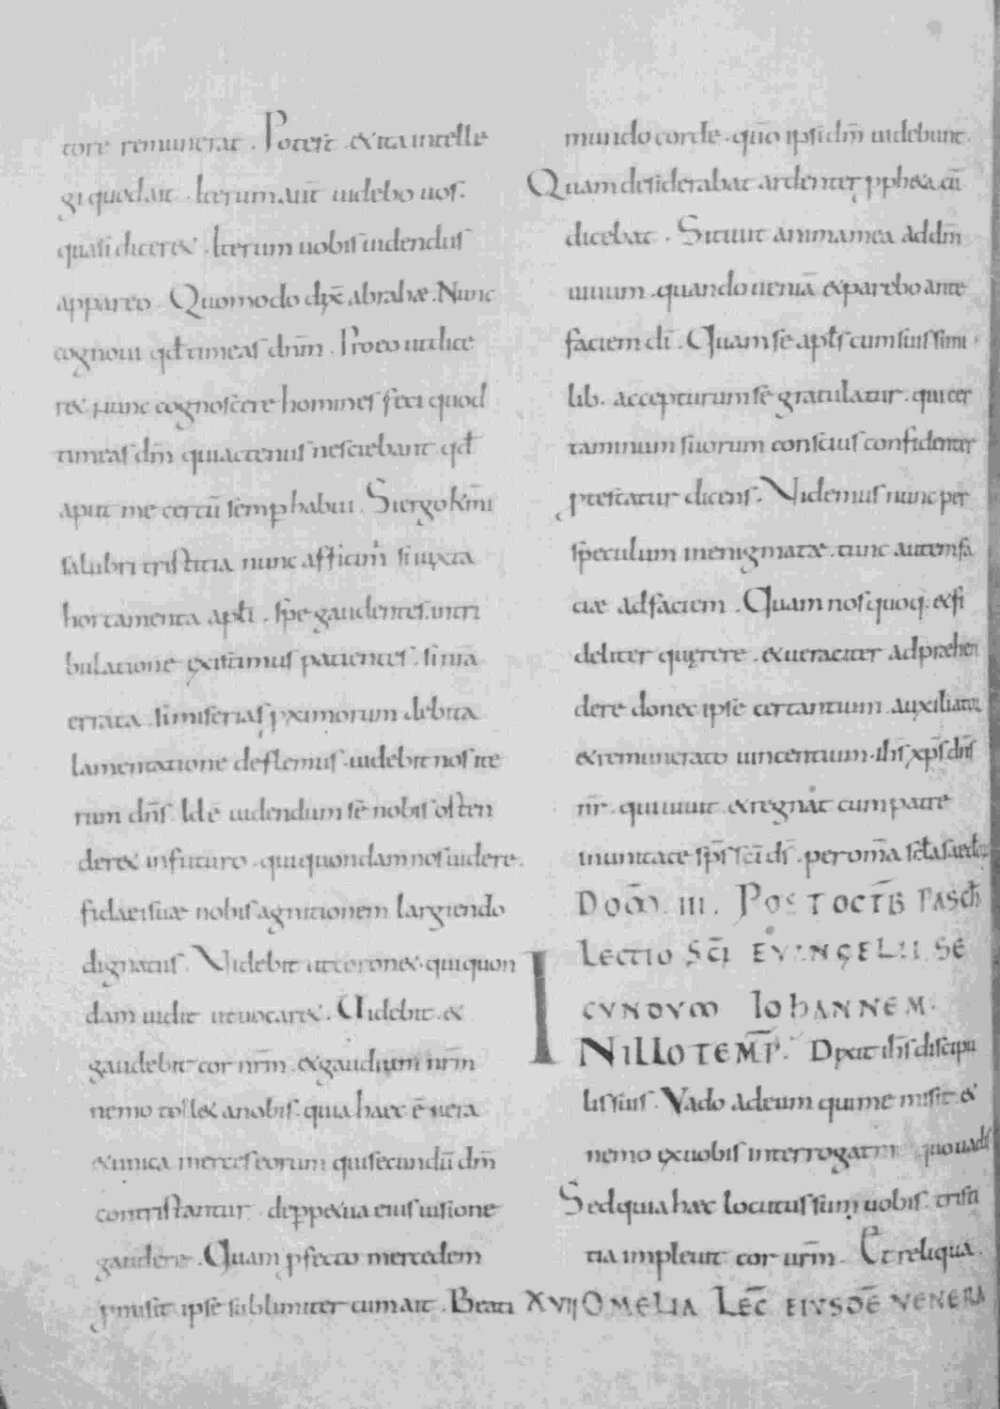 tore remunerat . Potest & ita intelle
gi quod ait . Iterum aut̄ uidebo uos .
quasi diceret . Iterum uobis uidendus
appareo . Quomodo dix̄ abrahæ . Nunc
cognoui qđ timeas dn̄m . Pro eo ut dice
ret nunc cognoscere homines feci quod
timeas dm̄ quia actenus nesciebant qđ
aput me certū semp habui . Si ergo
salubri tristitia nunc afficimr̄ si iuxta
hortamenta apłi . spe gaudentes . in tri
bulatione existimus patientes . si nr̄a
errata . si miserias pximorum debita
lamentatione deflemus . uidebit nos ite
rum dn̄s . Id ē uidendum sē nobis osten
deret in futuro . qui quondam nos uidere .
fidaei suæ nobis agnitionem largiendo
dignatus . Videbit ut coronet . qui quon
dam uidit ut uocaret . Uidebit . &
gaudebit cor nr̄m . & gaudium nr̄m
nemo tollet a nobis . quia haec ē uera
& unica merces eorum qui secundū dm̄
contristantur de ppetua eius uisione
gaudere . Quam pfecto mercedem
pmisit ipse sublimiter cum ait . Beati
mundo corde . qūo ipsi dm̄ uidebunt .
Quam desiderabat ardenter ppheta cū
dicebat . Sitiuit anima mea ad dm̄
uiuum . quando ueniā & parebo ante
faciem dī . Quam se apłs cum suis simi
lib . accepturum sē gratulatur . qui cer
taminum suorum conscius confidenter
ptestatur dicens . Videmus nunc per
speculum in enigmatæ . tunc autem fa
ciæ ad faciem . Quam nos quoq . & fi
deliter quęrere . & ueraciter adpræhen
dere donec ipse certantium . auxiliator
& remunerato uincentium . ihs̄ xp̄s dn̄s
nr̄ . qui uiuit & regnat cum patre
in unitate sp̄s sc̄i ds̄ . per om̄a
Doō . III . Post octb̄ Pasch
Lectio Sc̄i Euangelii se
cundum Iohannem .
In illo temp̄ . Dixit ihs̄ discipu
lis suis . Vado ad eum qui me misit . &
nemo ex uobis interrogat mē quo uadis
Sed quia hæc locutus sum uobis . tristi
tia impleuit cor ur̄m . Et reliqua .
XVII Omelia Lec̄ eiusdē venera